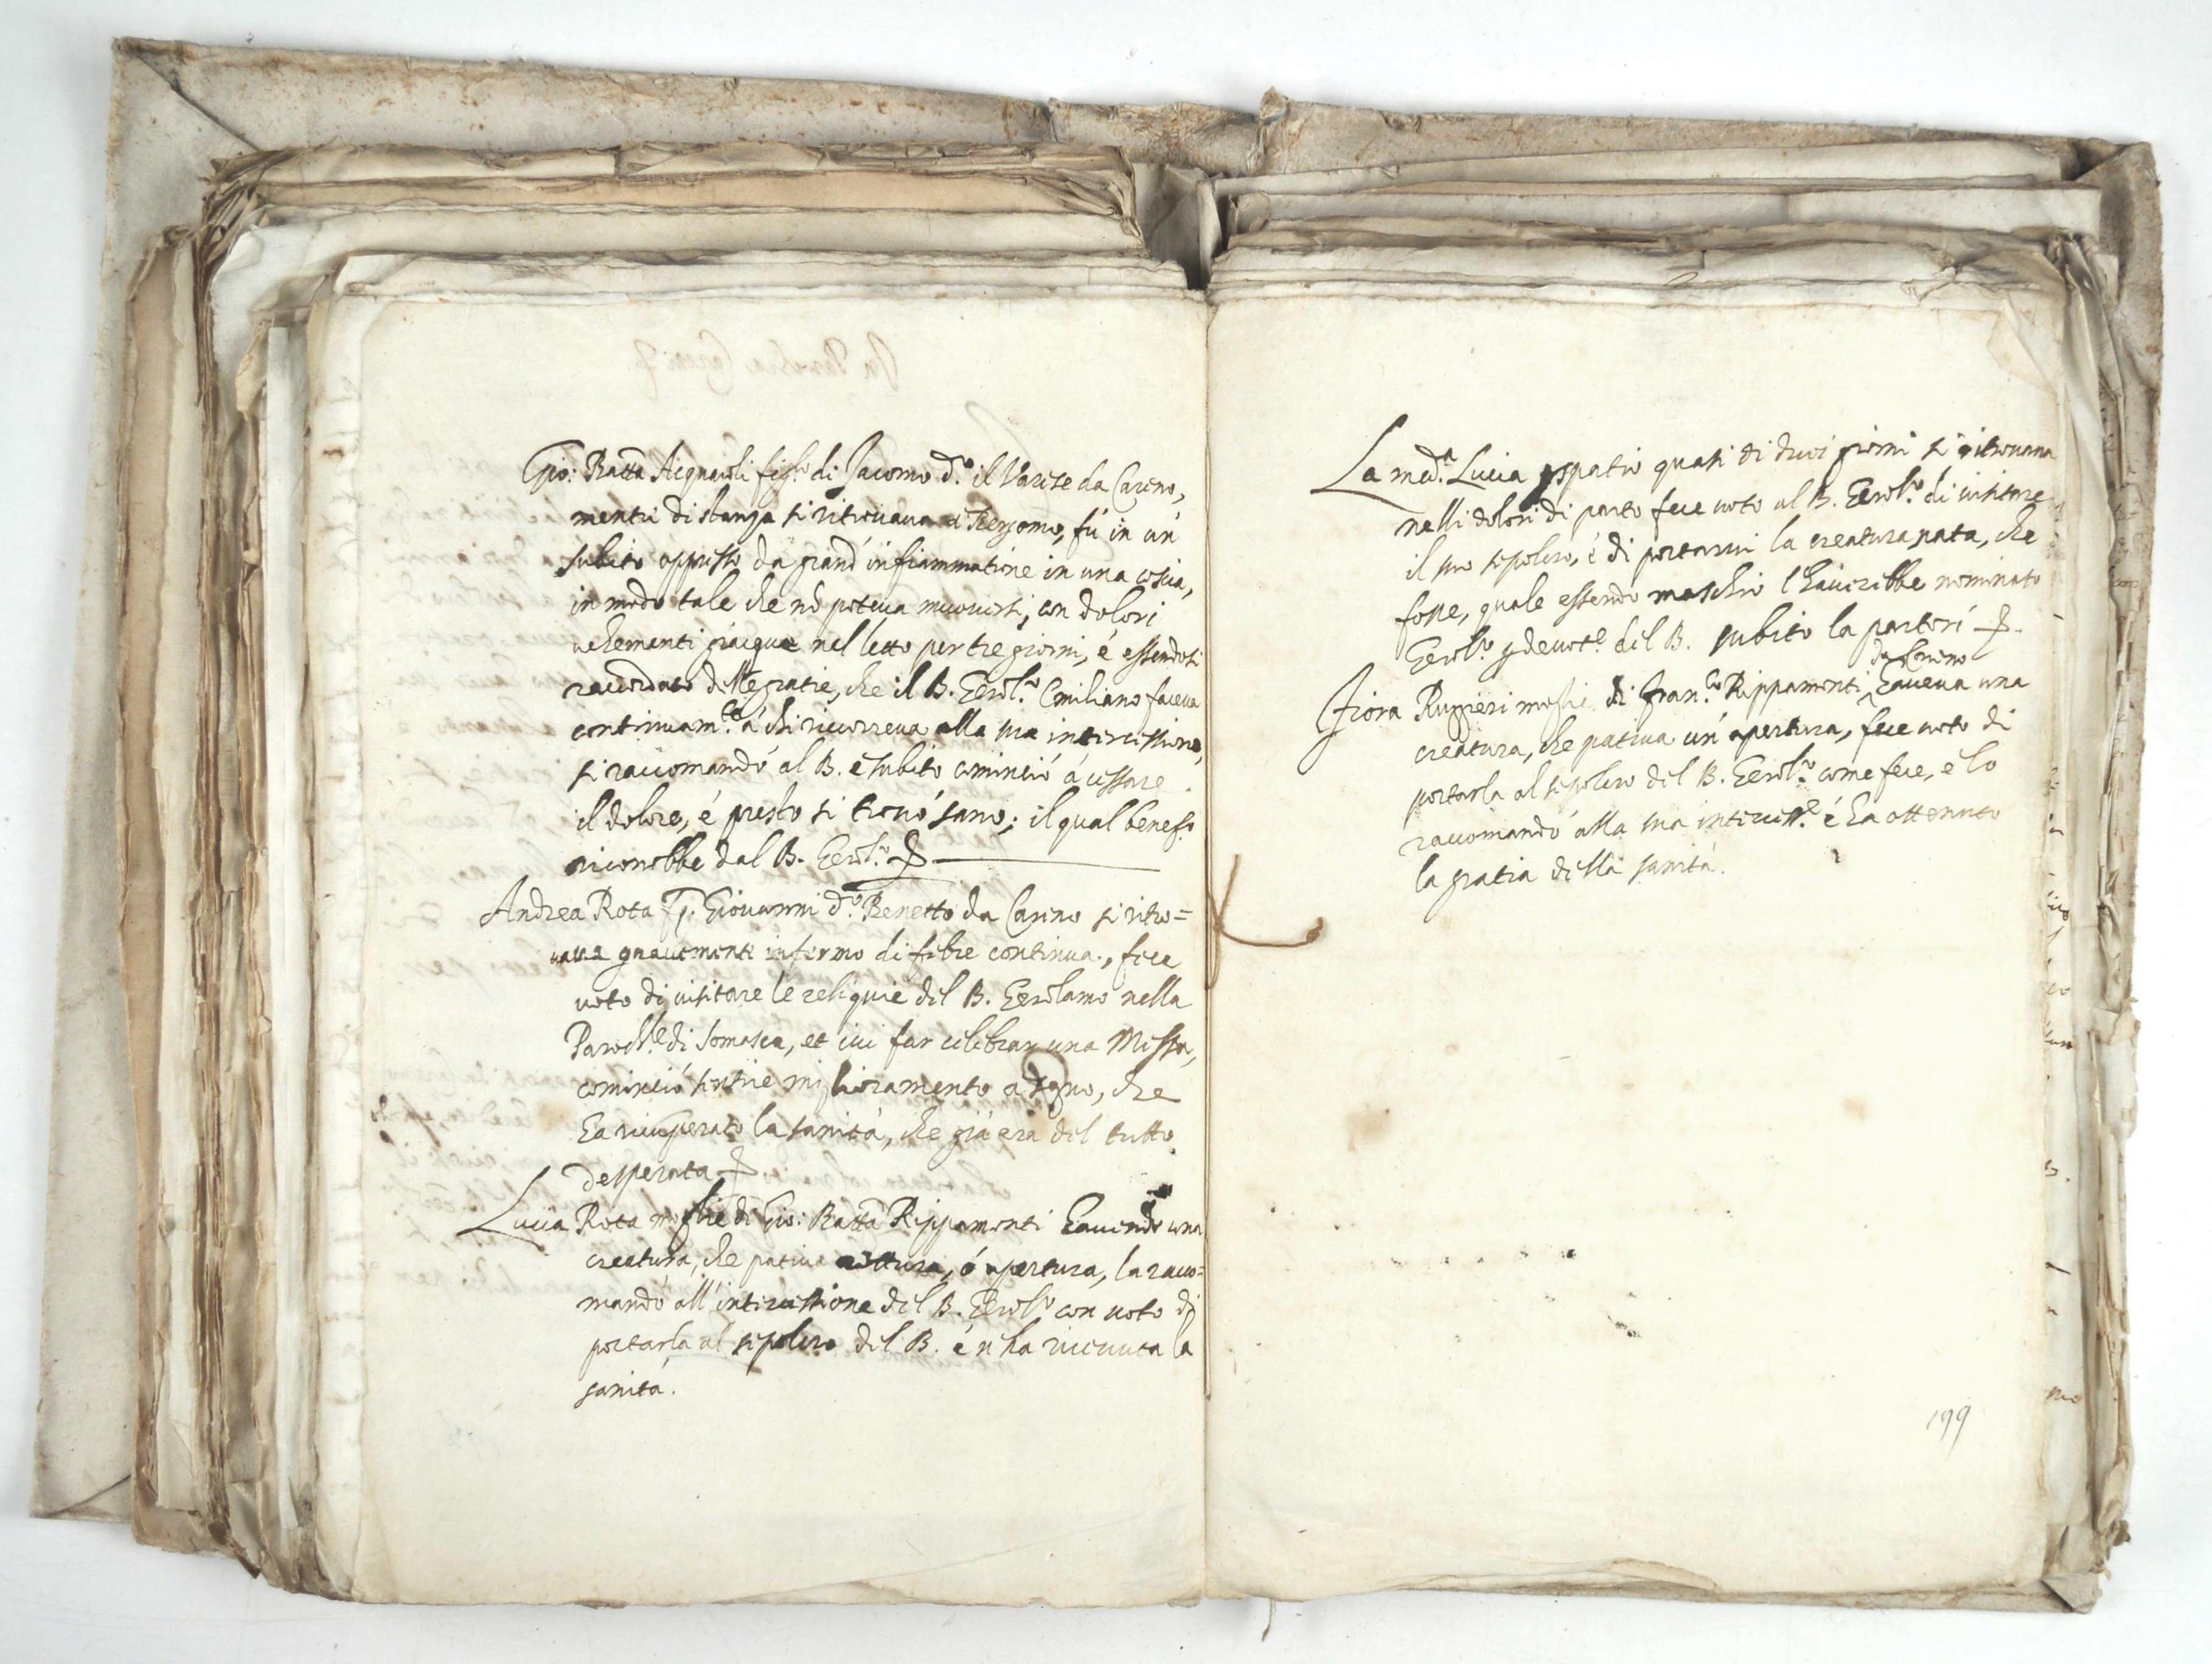 Gio: Batta Acquaroli figl.o di Jacomo d.o il Varese da Careno,
mentre di stanza si ritrovava à Bergomo, fù in un
subito oppresso da grand' infiammatione in una coscia,
in modo tale che nõ poteva muoversi, con dolori
vehementi giacque nel letto per tre giorni, è essendosi
raccordato delle gratie, che il B. Gerol.o Emiliano faceva
continuam.te à chi ricorreva alla sua intercessione,
si raccomandò al B. è subito cominciò à cessare
il dolore, è presto si trovò sano; il qual benef.o
riconobbe dal B. Gerol.o
Andrea Rota q. Giovanni d.o Benetto da Careno si ritro=
vava gravemente infermo di febre continua, fece
voto di visitare le reliquie del B. Gerolamo nella
Paroch.le di Somasca, et ivi far celebrar una Messa,
cominciò sentire miglioramento a segno, che
ha ricuperato la sanità, che già era del tutto
desperata
Lucia Rota moglie di Gio: Batta Rippamonti havendo una
creatura, che pativa rottura, ò apertura, la racco=
mandò all' intercessione del B. Gerol.o con voto di
portarla al sepolcro del B. è n' ha ricevuta la
sanità.
La med.a Lucia p spatio quasi di dieci giorni si ritrovava
nelli dolori di parto fece voto al B. Gerol.o di visitare
il suo sepolcro, è di portarvi la creatura nata, che
fosse, quale essendo maschio l'haverebbe nominato
Gerol.o p devot.e del B. subito la partorì
da Careno
Fiora Ruggieri moglie di Fran.co Rippamonti, haveva una
creatura, che pativa un' apertura, fece voto di
portarla al sepolcro del B. Gerol.o come fece, e lo
raccomandò alla sua intercess.e è ha ottenuto
la gratia della sanità.
199